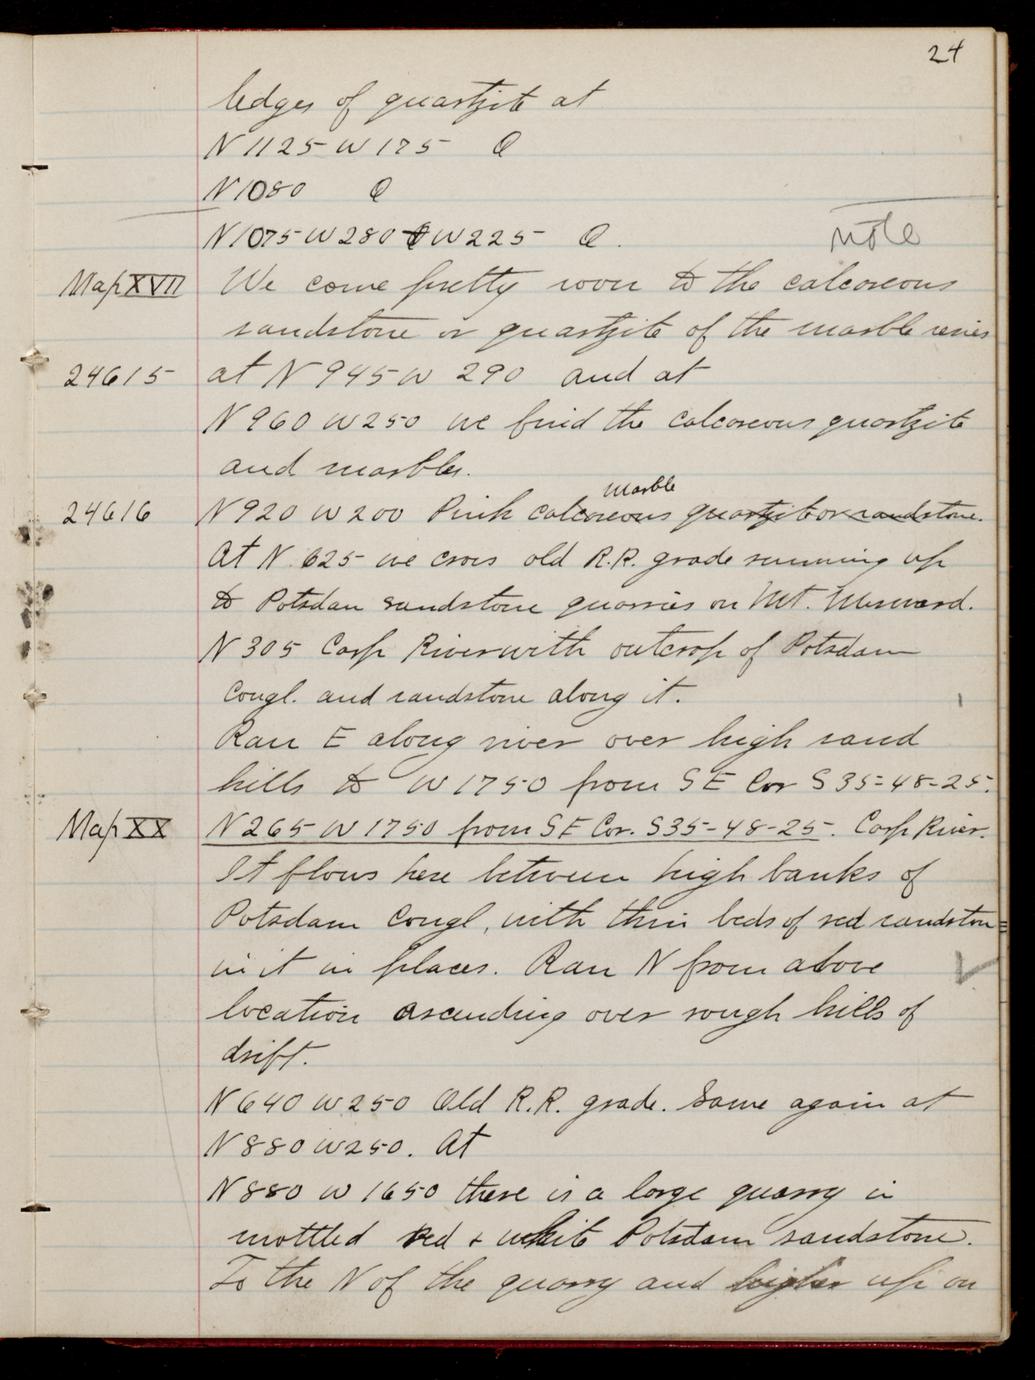 24
ledges of quartzite at
N 1125 W 175 Q
N 1080 Q
N 1075 W 280 & W 225 Q.
note
Map XVII We come pretty soon to the calcareous
sandstone or quartzite of the marble series
24615 at N 945 W 290 and at
N 960 W 250 we find the calcareous quartzite
and marbles.
marble
24616 N 920 W 200 Pink calcareous quartzite or sandstone.
At N. 625 we cross old R.R. grade running up
to Potsdam sandstone quarries on Mt. Mesnard.
N 305 Carp River with outcrop of Potsdam
Congl. and sandstone along it.
Ran E along river over high sand
hills to W 1750 from SE Cor S 35-48-25.
Map XX N 265 W 1750 from SE Cor. S35-48-25. Carp River.
It flows here between high banks of
Potsdam Congl, with thin beds of red sandston=
in it in places. Ran N from above
location ascending over rough hills of
drift.
N 640 W 250 Old R.R. grade. Same again at
N 880 W 250. At
N 880 W 1650 there is a large quarry in
mottled red + white Potsdam sandstone.
To the N of the quarry and higher up on